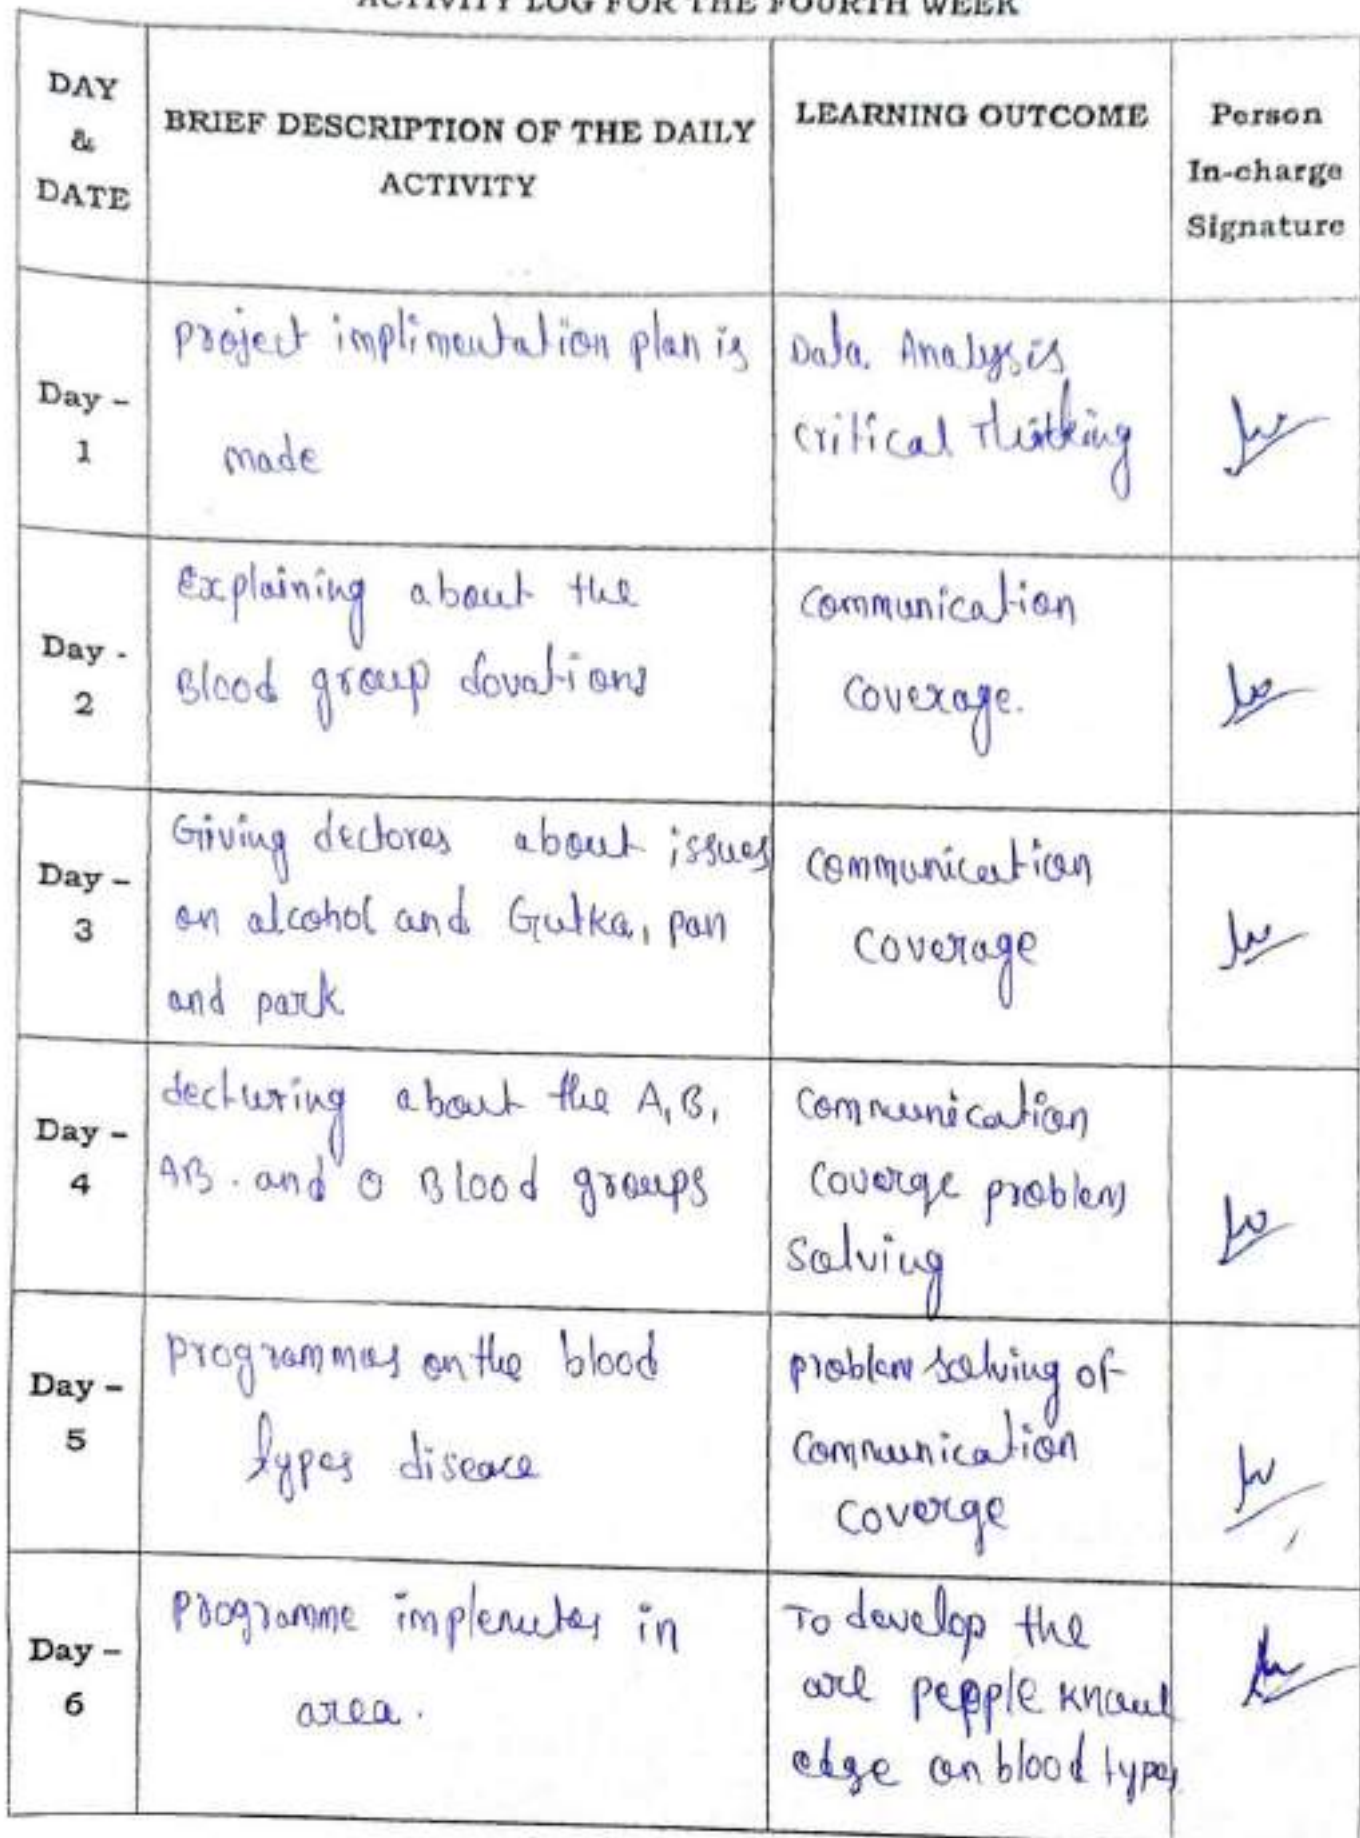 ACTIVITY LOG FOR THE FOURTH WEEK
DAY
&
DATE
BRIEF DESCRIPTION OF THE DAILY
ACTIVITY
LEARNING OUTCOME
Person
In-charge
Signature
Day –
1
project implimentation plan is
made
Data Analysis
critical Thinking
Day -
2
Explaining about the
Blood group donations
communication
coverage.
Day –
3
Giving dectores about issues
on alcohol and Gutka, pan
and park
communication
coverage
Day –
4
decturing about the A, B,
AB. and O Blood groups
communication
coverge problem
solving
Day –
5
programmes on the blood
types diseace
problem solving of
communication
coverge
Day –
6
programme in
area.
To develop the
are people knowl
edge on blood types